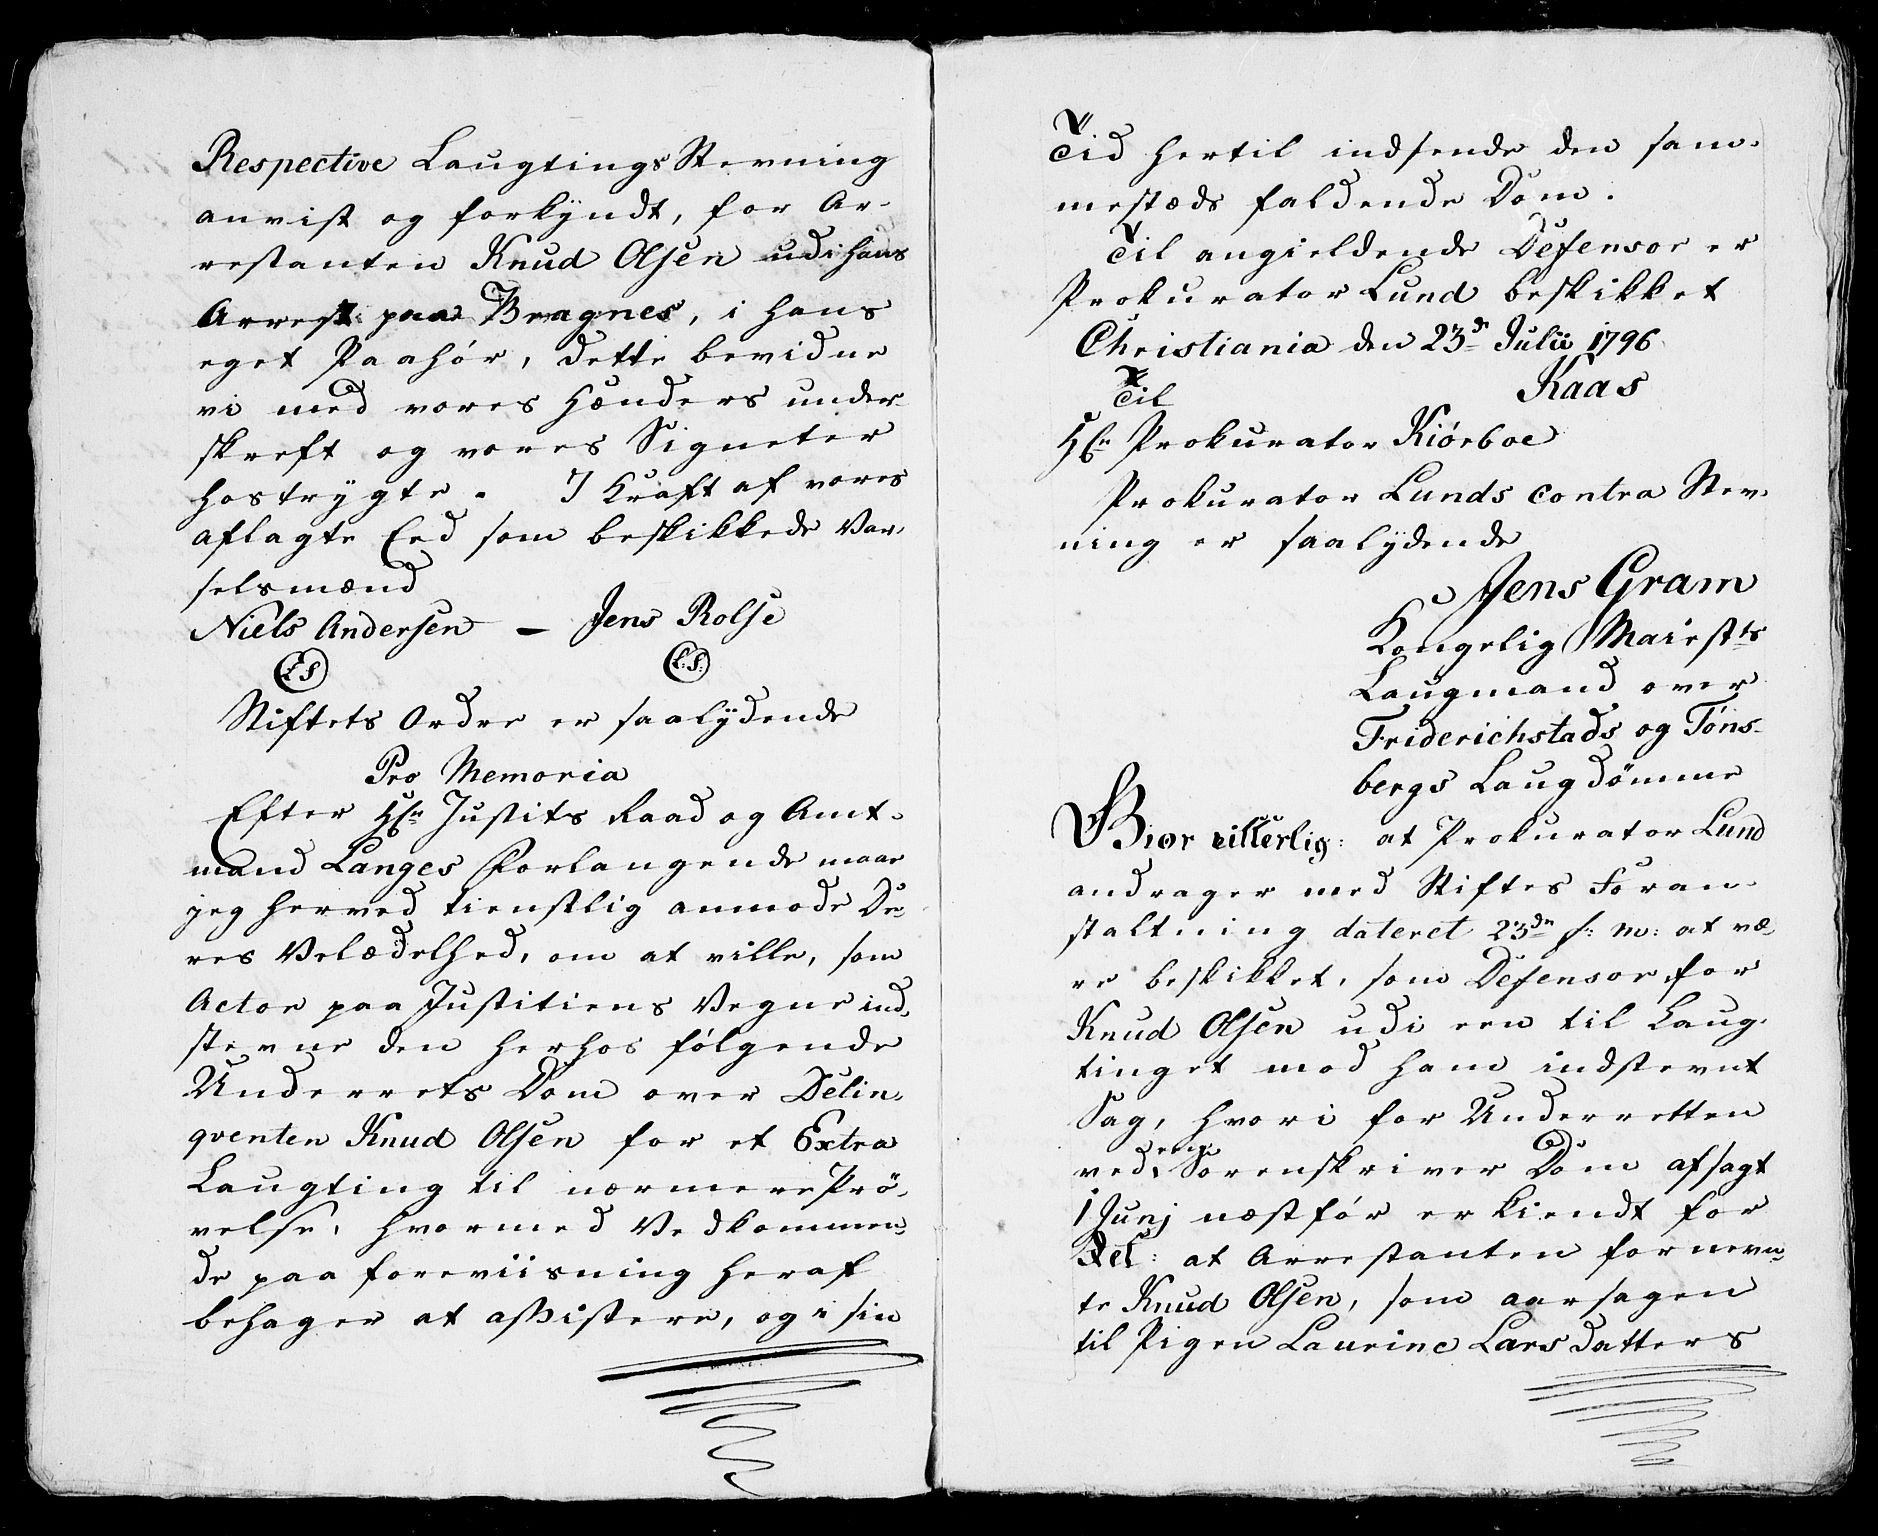 Respective Laugtings Stevning
anvist og forkyndt, for Ar-
restanten Knud Olsen udi hans
Arrest paa Bragnes, i hans
eget Paahør, dette bevidne
vi med vores Hænders under
skreft og vores Signeter
hostrygte. I Kraft af vores
aflagte Eed som beskikkede Var-
selsmænd
Niels Andersen — Jens Rolse
LS L:S:
Stiftets Ordre er saalydende
Pro Memoria
Efter Hr Justits Raad og Amt-
mand Langes Forlangende maae
jeg herved tienstlig anmode De-
res Velædelhed, om at ville, som
Actor paa Justitiens Vegne ind-
stevne den herhos følgende
Underrets Dom over Delin-
qventen Knud Olsen for et Extra
Laugting til nærmere Prö-
velse, hvormed Vedkommen-
de paa foreviisning heraf
behager at assistere, og i sin
Tid hertil indsende den sam-
mestæds faldende Dom.
Til angieldende Defensor er
Prokurator Lund beskikket
Christiania den 23de Julii 1796
Kaas
Til
Hr Prokurator Kiørboe
Prokurator Lunds contra Stev-
ning er saalydende
Jens Gram
Kongelig Maiests
Laugmand over
Friderichstads og Töns-
bergs Laugdömme
Giør vitterlig: at Prokurator Lund
andrager med Stiftes Foran-
staltning dateret 23de f: m: at væ-
re beskikket, som Defensor for
Knud Olsen udi een til Laug-
tinget mod ham indstevnt
Sag, hvori for Underretten
ved Sorenskriver Dom afsagt
1 Junj næstfór er kiendt for
Ret: at Arrestanten fornevn-
te Knud Olsen, som aarsagen
til Pigen Laurine Larsdatters